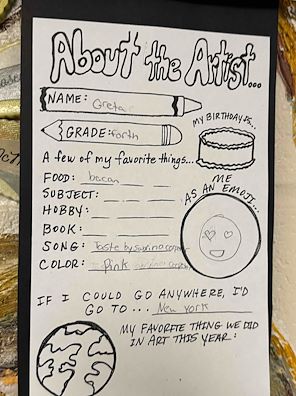 About the Artist...
NAME: Greta
MY BIRTHDAY IS...
GRADE: forth
A few of my favorite things...
FOOD: bacon
ME
AS AN EMOJI...
SUBJECT:
HOBBY:
BOOK:
SONG: Taste by sabrina carpenter
COLOR: Pink
IF I COULD GO ANYWHERE, I'D
GO TO... New York
MY FAVORITE THING WE DID
IN ART THIS YEAR: